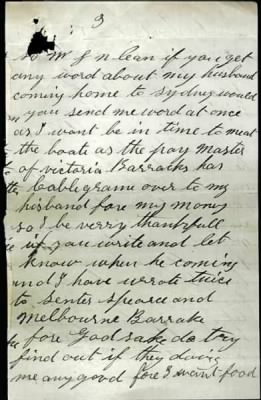 3
so Mr J n lean if you get
any word about my husband
coming home to sydney would
you send me word at once
as I wont be in time to meat
the boate as the pay master
of victoria Barracks has
Cablegrame over to my
hisband fore my money
so I be verry thankfull
if you write and let
know when he coming
and I have wrote twice
to Senter speace and
Melbourne Barrake
fore God sake do try
find out if they doing
me any good fore I want food